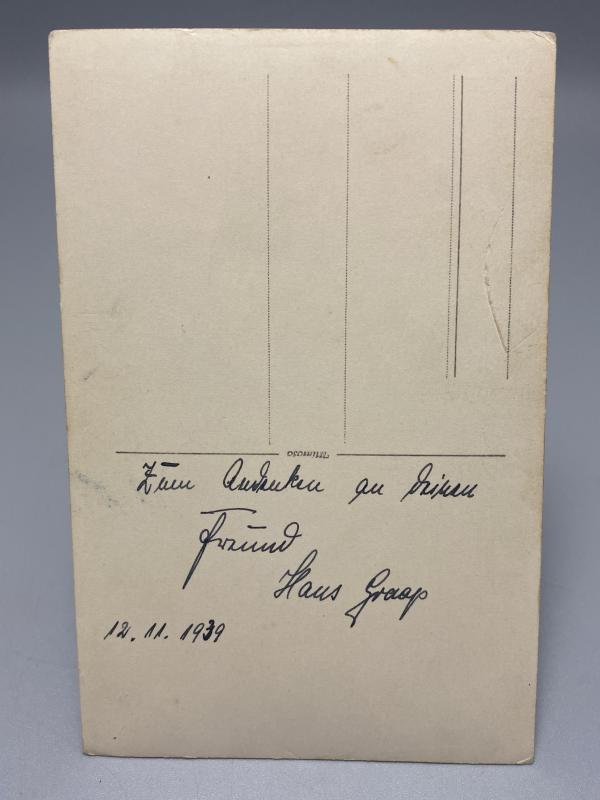 Mimosa
Zum Andenken an Deinen
Freund
Hans Graap
12. 11. 1939